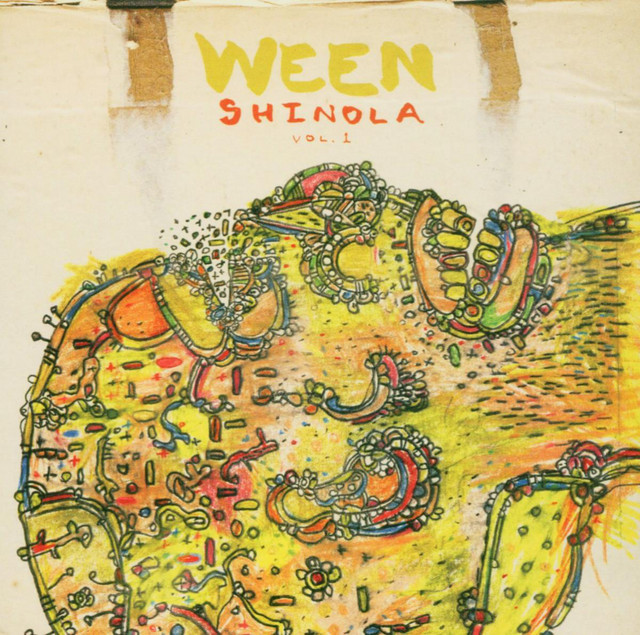 WEEN
SHINOLA
VOL.1